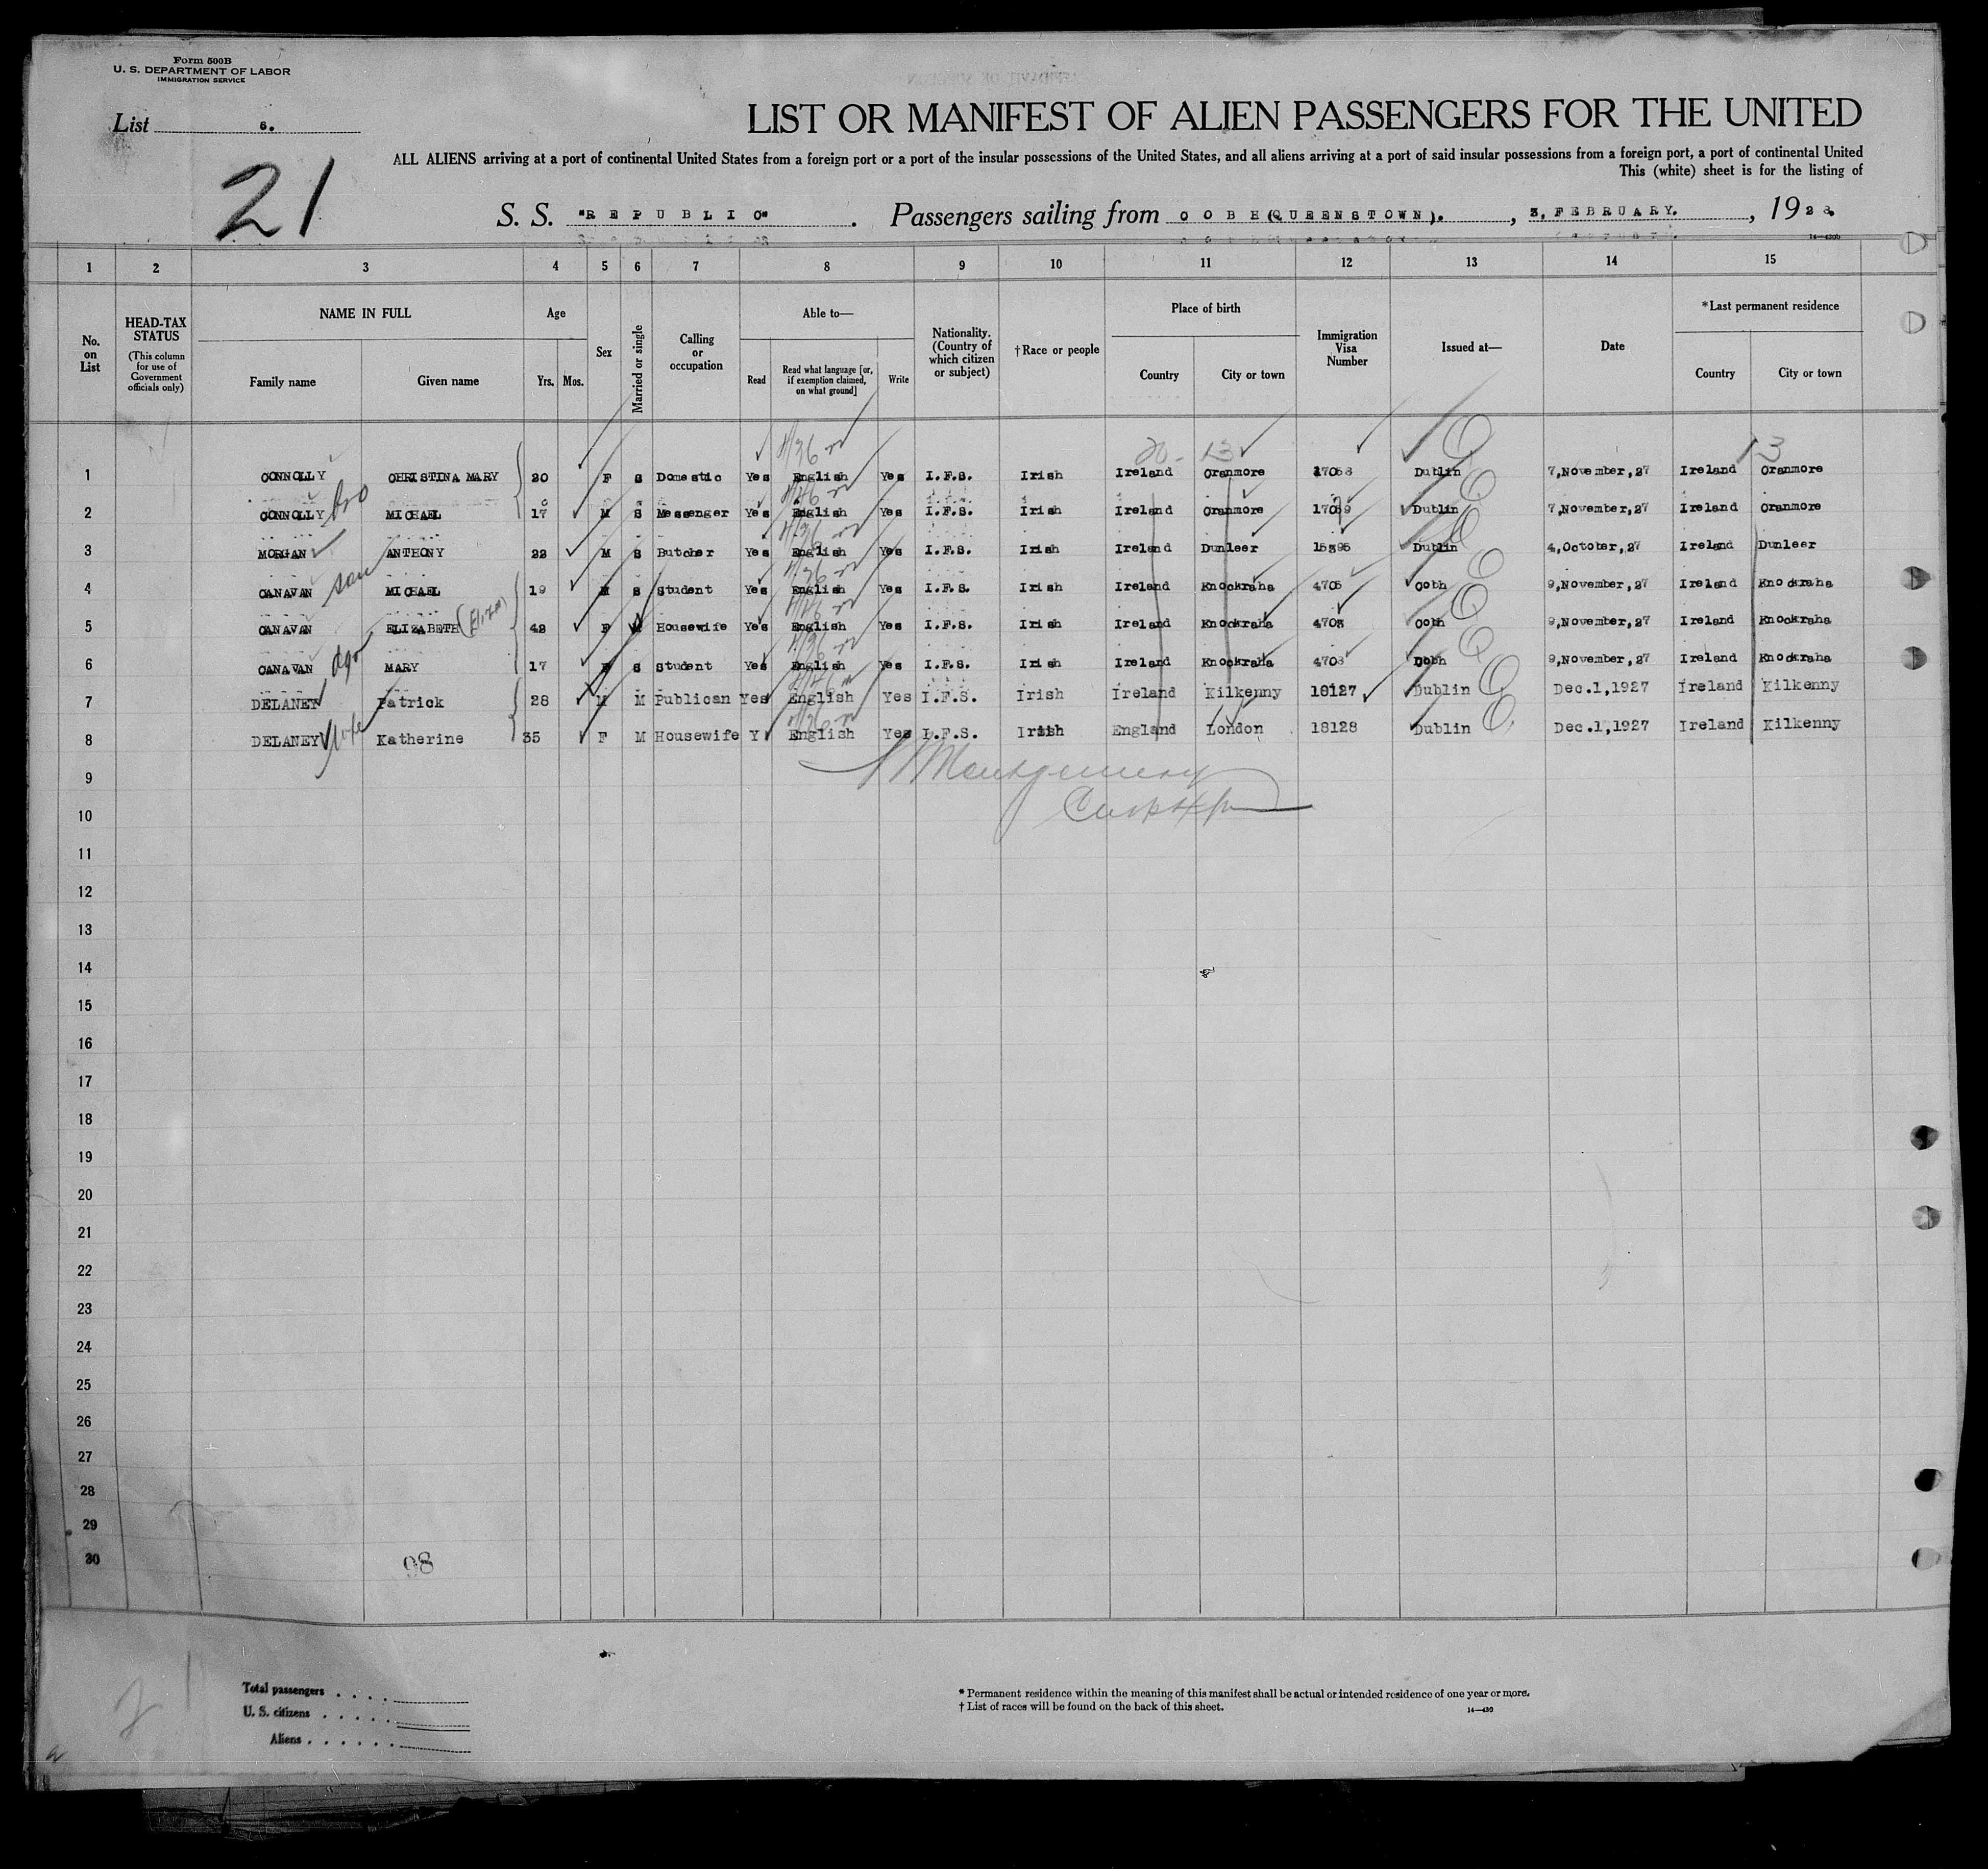 Form 500B
U. S. DEPARTMENT OF LABOR
IMMIGRATION SERVICE
List 6.
LIST OR MANIFEST OF ALIEN PASSENGERS FOR THE UNITED
ALL ALIENS arriving at a port of continental United States from a foreign port or a port of the insular possessions of the United States, and all aliens arriving at a port of said insular possessions from a foreign port, a port of continental United
This (white) sheet is for the listing of
21
S. S. "REPUBLIC". Passengers sailing from COBH (QUEENSTOWN)., 3, FEBRUARY., 1928.
14—430b
1 2 3 4 5 6 7 8 9 10 11 12 13 14 15
No. on List
HEAD-TAX STATUS
(This column for use of Government officials only)
NAME IN FULL
Family name Given name
Age
Yrs. Mos.
Sex
Married or single
Calling or occupation
Able to—
Read
Read what language [or, if exemption claimed, on what ground]
Write
Nationality. (Country of which citizen or subject)
†Race or people
Place of birth
Country City or town
Immigration Visa Number
Issued at—
Date
*Last permanent residence
Country City or town
20 - 13 13
1 CONNOLLY CHRISTINA MARY 20 F S Domestic Yes English Yes I.F.S. Irish Ireland Oranmore 17058 Dublin 7,November,27 Ireland Oranmore
bro
2 CONNOLLY MICHAEL 17 M S Messenger Yes English Yes I.F.S. Irish Ireland Oranmore Dublin 7,November,27 Ireland Oranmore
3 MORGAN ANTHONY 22 M S Butcher Yes English Yes I.F.S. Irish Ireland Dunleer 15395 Dublin 4,October,27 Ireland Dunleer
son
4 CANAVAN MICHAEL 19 M S Student Yes English Yes I.F.S. Irish Ireland Knockraha 4705 Cobh 9,November,27 Ireland Knockraha
5 CANAVAN ELIZABETH 42 F M Housewife Yes English Yes I.F.S. Irish Ireland Knockraha Cobh 9,November,27 Ireland Knockraha
dgr
6 CANAVAN MARY 17 F S Student Yes English Yes I.F.S. Irish Ireland Knockraha Cobh 9,November,27 Ireland Knockraha
7 DELANEY Patrick 28 M M Publican Yes English Yes I.F.S. Irish Ireland Kilkenny 18127 Dublin Dec.1,1927 Ireland Kilkenny
wife
8 DELANEY Katherine 35 F M Housewife Y English Yes I.F.S. Irish England London 18128 Dublin Dec.1,1927 Ireland Kilkenny
9 Montgomery
10
11
12
13
14
15
16
17
18
19
20
21
22
23
24
25
26
27
28
29
30
98
21
Total passengers
U. S. citizens
Aliens
* Permanent residence within the meaning of this manifest shall be actual or intended residence of one year or more.
† List of races will be found on the back of this sheet.
14—430